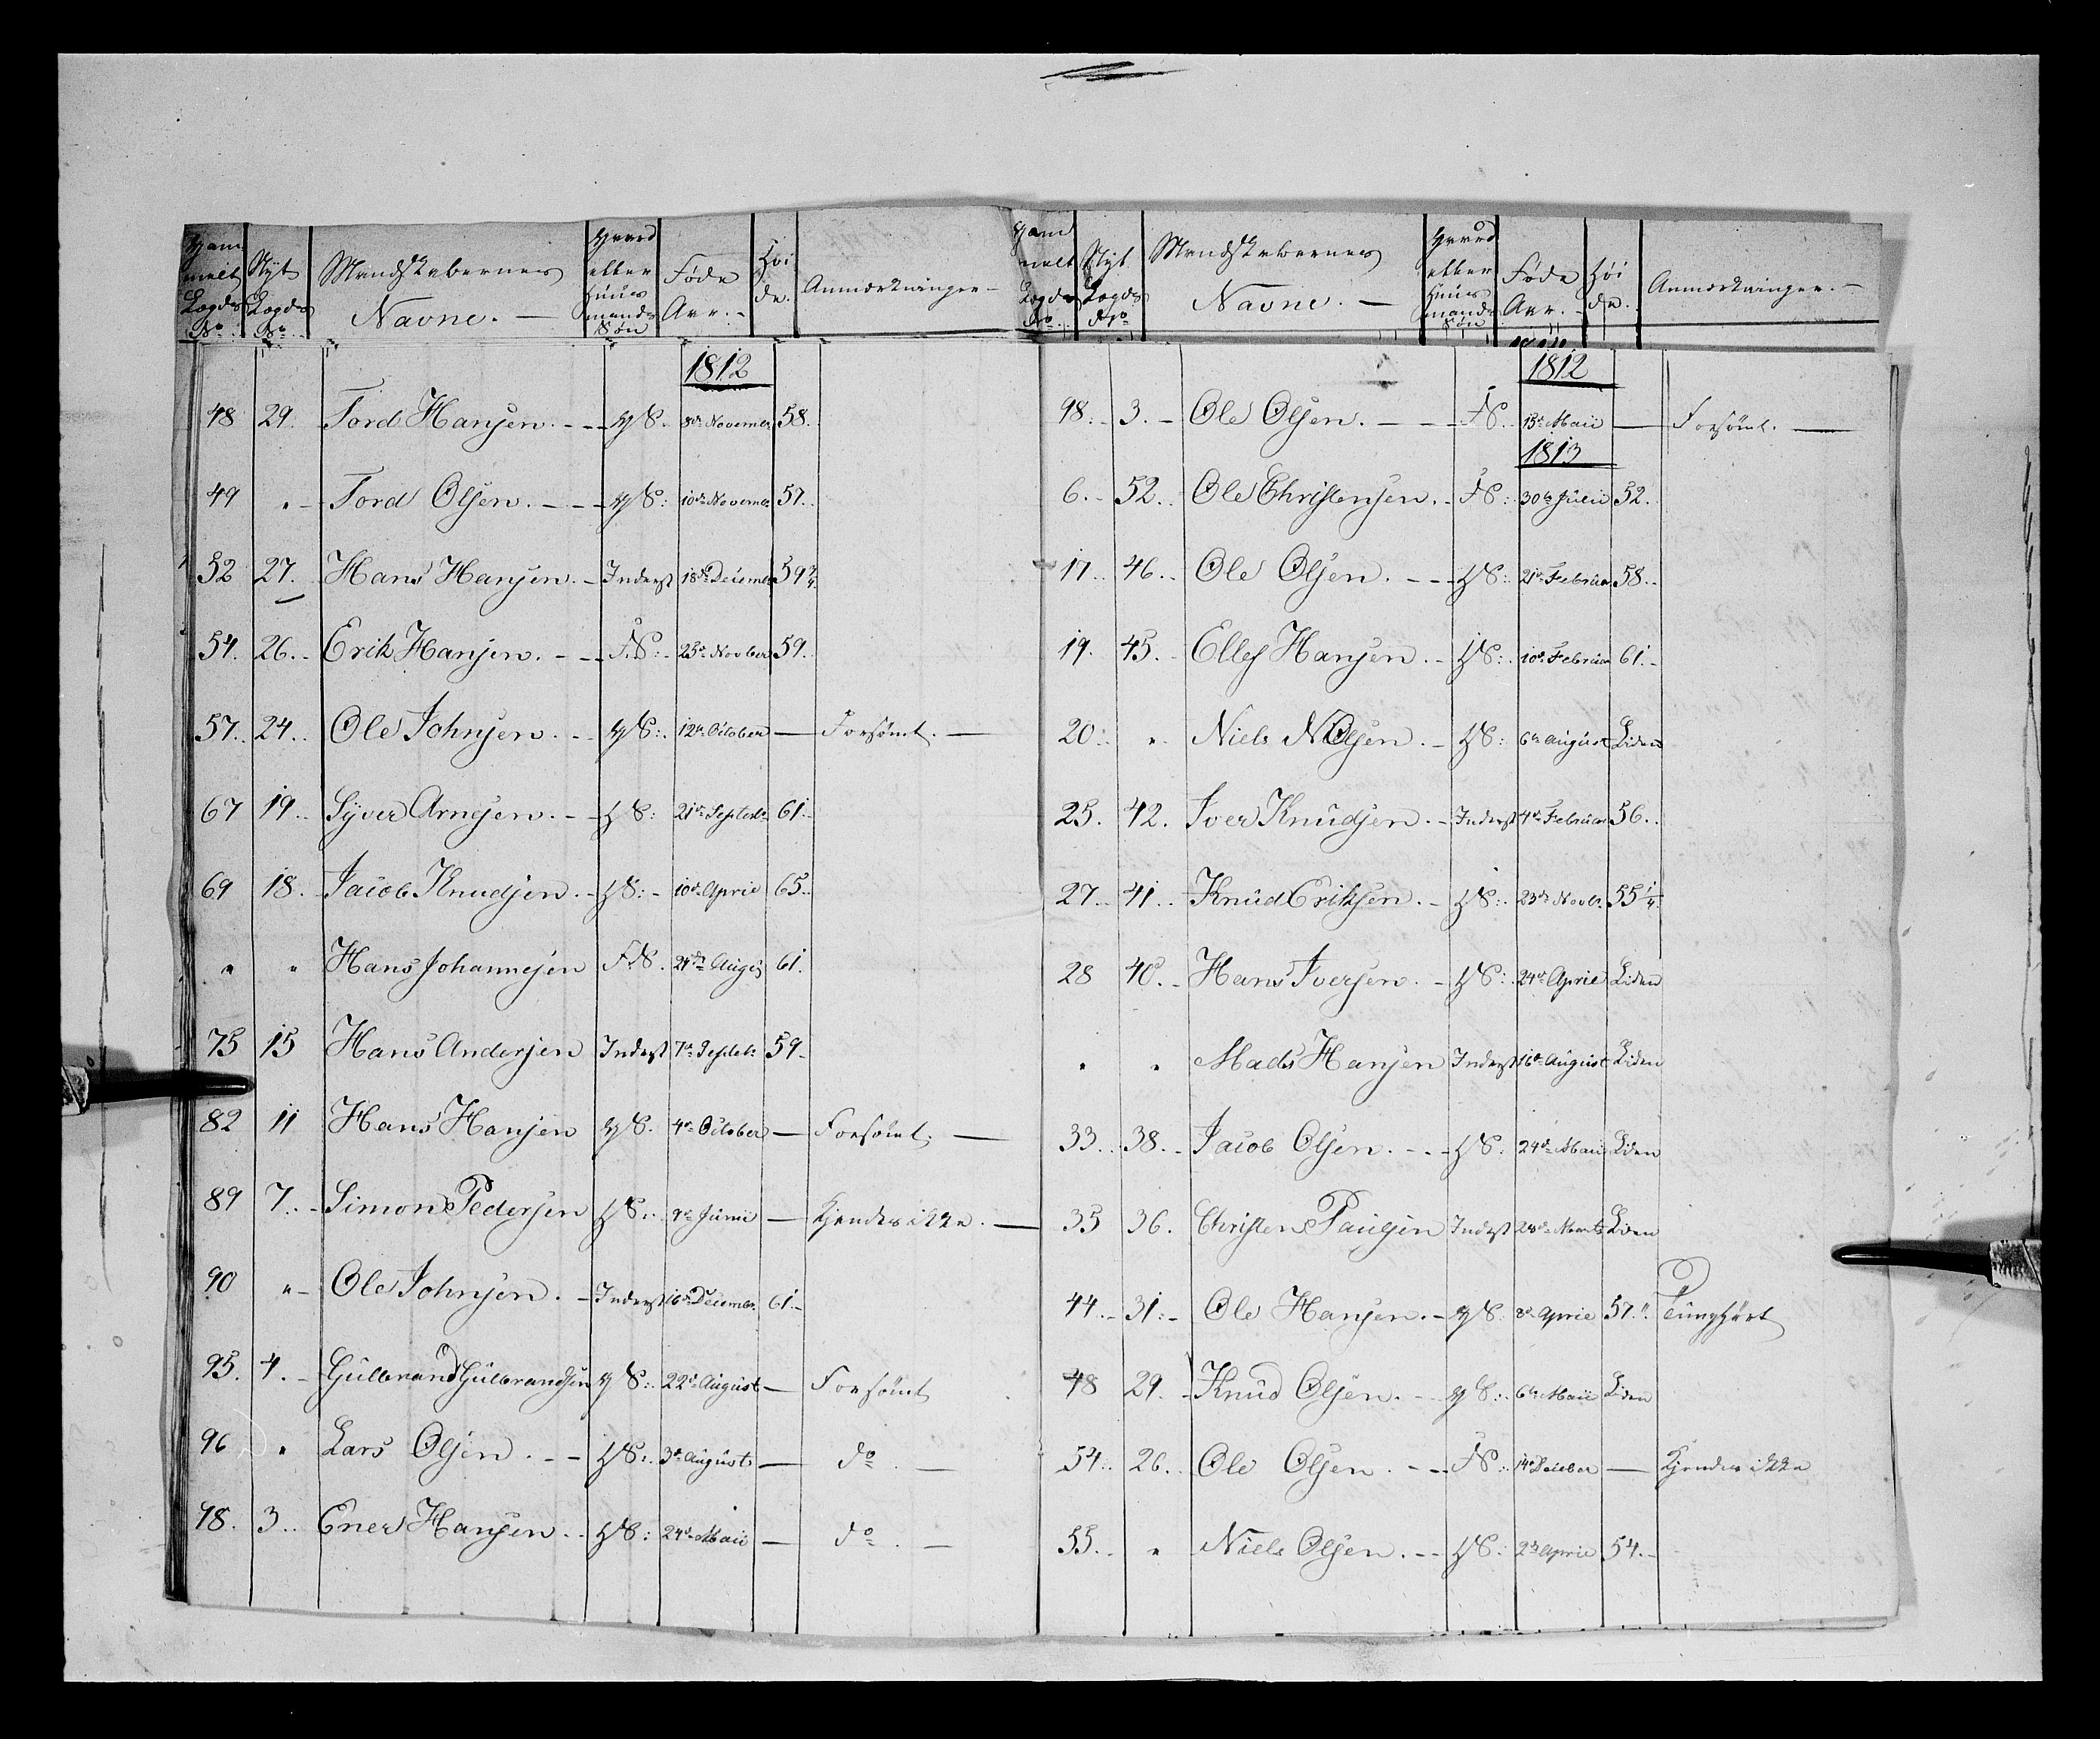 Gam
melt
Lægds
No
Nyt
Lægds
No
Mandskabernes
Navne. —
Gaard
eller
Huus
mands
Søn
Føde
Aar. -
Høi
de.
Anmærkninger -
1812
48 29. Tord Hansen. - - GS. 8de Novembr 58.
49 " - Tord Olsen. - - - GS: 10de Novembr 57.
52 27. Hans Hansen. - Inderst 18de Decembr 59 3/4
54. 26. - Erik Hansen. - - FS: - 25de Novber 59.
57. 24. Ole Johnsen. - - GS: 12te October — Forsømt. —
67 19. Syver Arnesen. - - HS: 21de Septebr 61. -
69 18. Jacob Knudsen. - HS: - 10de April 65.
" " Hans Johannesen FS. 21de Augs 61.
75 15 Hans Andersen Inderst 7de Septebr 59 -
82 11 Hans Hansen GS. 4de October — Forsømt. —
89 7. - Simon Pedersen HS: Junii — Kjendes ikke. —
90 " - Ole Johnsen. - Inderst 16de Decembr 61. -
95. 4. - Gulbrand Gulbrandsen GS: 22de August — Forsømt
96 " Lars Olsen. - - HS: 3de August — do. —
98. 3. Ener Hansen. - HS: 24de Maii — do. —
Gam
melt
Lægds
No
Nyt
Lægds
No
Mandskabernes
Navne. —
Gaard
eller
Huus
mands
Søn
Føde
Aar. -
Høi
de.
Anmærkninger. —
1812
98. 3. - Ole Olsen. - - - FS. 15de Maii — Forsømt. —
1813
6. - 52. Ole Christensen. - FS: 30te Julii 52.
17. 46. - Ole Olsen. - - - HS: 21de Februar 58. -
19. 45. - Ellef Hansen. - HS: 10de Februar 61. -
20. " Niels Nilsen. - HS: 6te August Liden
25. 42. Iver Knudsen. - Inderst 4de Februar 56.
27. 41. Knud Eriksen. - HS: 23de Novbr 55 1/4
28 40. - Hans Iversen. - HS: 24de April Liden
" " Mads Hansen Inderst 16de August Liden
33. 38. - Jacob Olsen. - - - HS: 24de Maii Liden
35 36. Christen Paulsen Inderst 28de Marts Liden
44. - 31. - Ole Hansen. - GS: 8de April 57." Tunghørt
48 29. - Knud Olsen. - GS: 6te Maii Liden
54. 26. Ole Olsen. - - FS: 14de — Kjendes ikke
55. " Niels Olsen. - - HS: April 54. -